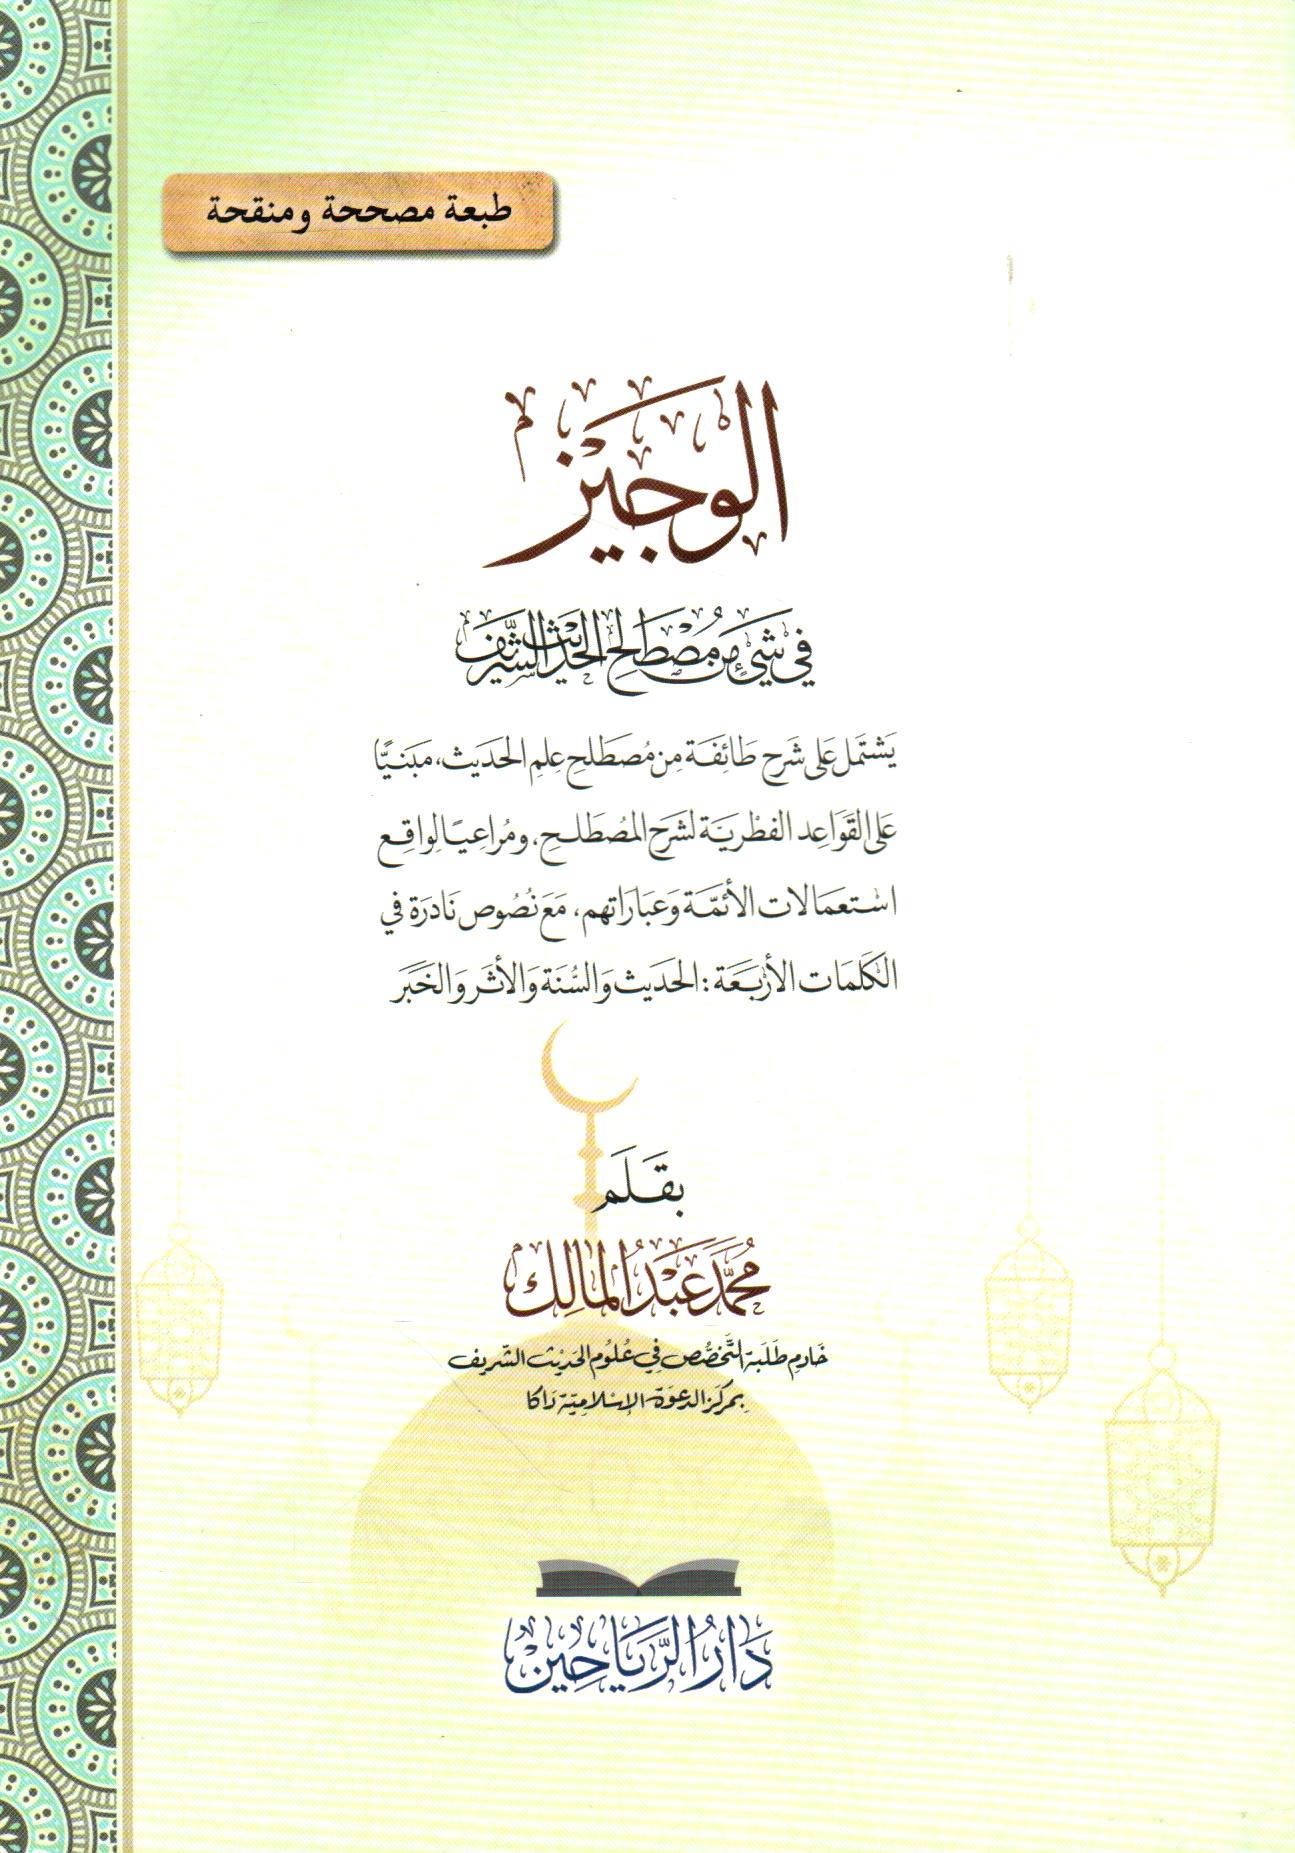 طبعة مصححة ومنقحة
الوجيز
في شيء من مصطلح الحديث الشريف
يشتمل على شرح طائفة من مصطلح علم الحديث، مبنيًّا
على القواعد الفطرية لشرح المصطلح، ومراعيًا لواقع
استعمالات الأئمّة وعباراتهم، مع نصوص نادرة في
الكلمات الأربعة: الحديث والسُّنة والأثر والخبر
بقلم
محمد عبد المالك
خادم طلبة التخصّص في علوم الحديث الشريف
بمركز الدعوة الإسلامية داكا
دار الرياحين